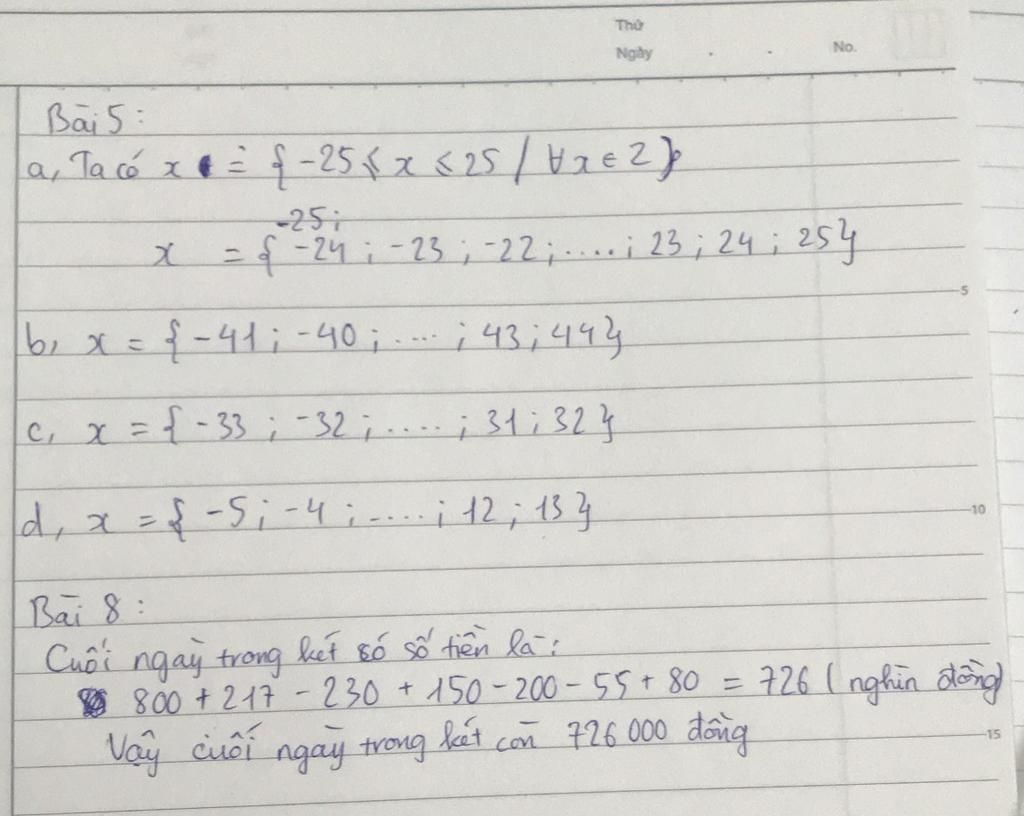 Thứ
Ngày . . No.
Bài 5:
a, Ta có x = { -25 ≤ x ≤ 25 / ∀x ∈ Z }
-25;
x = { -24 ; -23 ; -22 ; .... ; 23 ; 24 ; 25 }
5
b, x = { -41 ; -40 ; .... ; 43 ; 44 }
c, x = { -33 ; -32 ; .... ; 31 ; 32 }
d, x = { -5 ; -4 ; .... ; 12 ; 13 }
10
Bài 8 :
Cuối ngày trong két só số tiền là :
800 + 217 - 230 + 150 - 200 - 55 + 80 = 726 ( nghìn đồng)
Vậy cuối ngày trong két còn 726 000 đồng
15